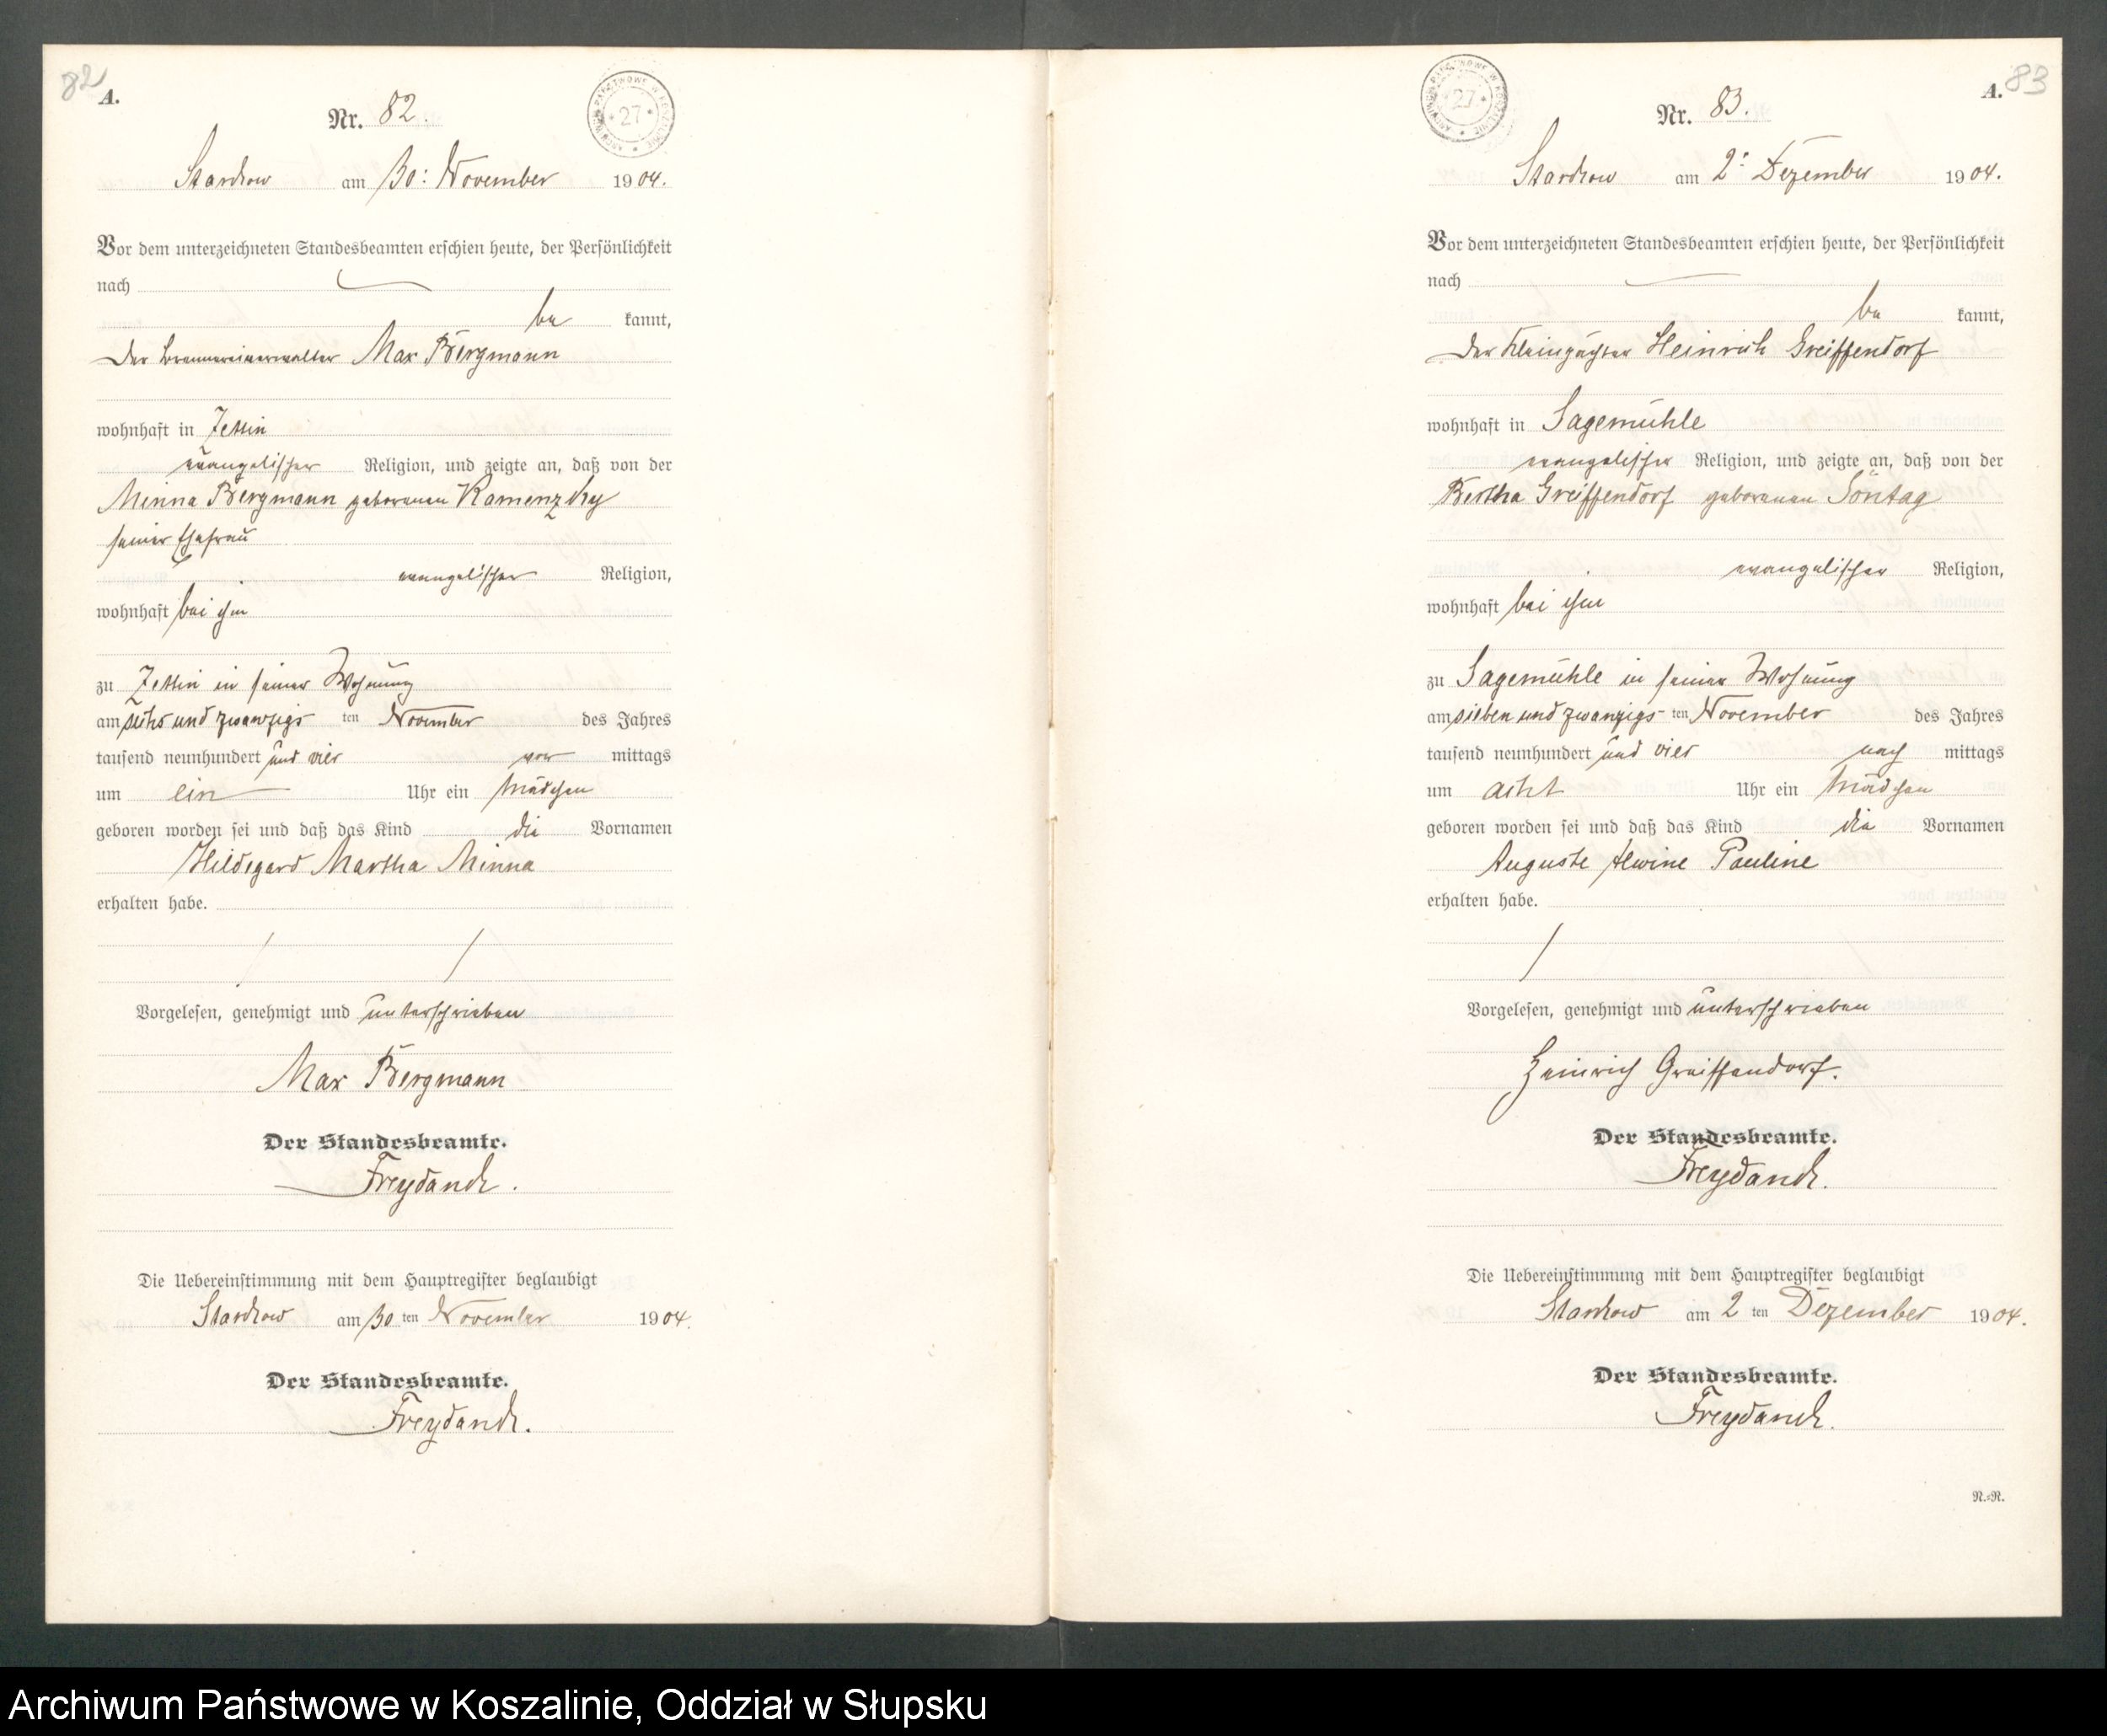 82
A.
Nr. 82.
ARCHIWUM PAŃSTWOWE W KOSZALINIE * 27 *
Starckow am 30: November 1904.
Vor dem unterzeichneten Standesbeamten erschien heute, der Persönlichkeit
nach
be kannt,
der Brennereiverwalter Max Bergmann
wohnhaft in Zettin
evangelischer Religion, und zeigte an, daß von der
Minna Bergmann geborenen Kamenzky
seiner Ehefrau
evangelischer Religion,
wohnhaft bei ihm
zu Zettin in seiner Wohnung
am sechs und zwanzigs ten November des Jahres
tausend neunhundert und vier vor mittags
um ein Uhr ein Mädchen
geboren worden sei und daß das Kind die Vornamen
Hildegard Martha Minna
erhalten habe.
Vorgelesen, genehmigt und unterschrieben
Max Bergmann
Der Standesbeamte.
Freydanck.
Die Uebereinstimmung mit dem Hauptregister beglaubigt
Starckow am 30 ten November 1904.
Der Standesbeamte.
Freydanck.
83
A.
Nr. 83.
ARCHIWUM PAŃSTWOWE W KOSZALINIE * 27 *
Starckow am 2: Dezember 1904.
Vor dem unterzeichneten Standesbeamten erschien heute, der Persönlichkeit
nach
be kannt,
der Kleinpächter Heinrich Greiffendorf
wohnhaft in Sagemühle
evangelischer Religion, und zeigte an, daß von der
Bertha Greiffendorf geborenen Sontag
evangelischer Religion,
wohnhaft bei ihm
zu Sagemühle in seiner Wohnung
am sieben und zwanzigs ten November des Jahres
tausend neunhundert und vier nach mittags
um acht Uhr ein Mädchen
geboren worden sei und daß das Kind die Vornamen
Auguste Alwine Pauline
erhalten habe.
Vorgelesen, genehmigt und unterschrieben
Heinrich Greiffendorf.
Der Standesbeamte.
Freydanck.
Die Uebereinstimmung mit dem Hauptregister beglaubigt
Starckow am 2 ten Dezember 1904.
Der Standesbeamte.
Freydanck.
R.=R.
Archiwum Państwowe w Koszalinie, Oddział w Słupsku